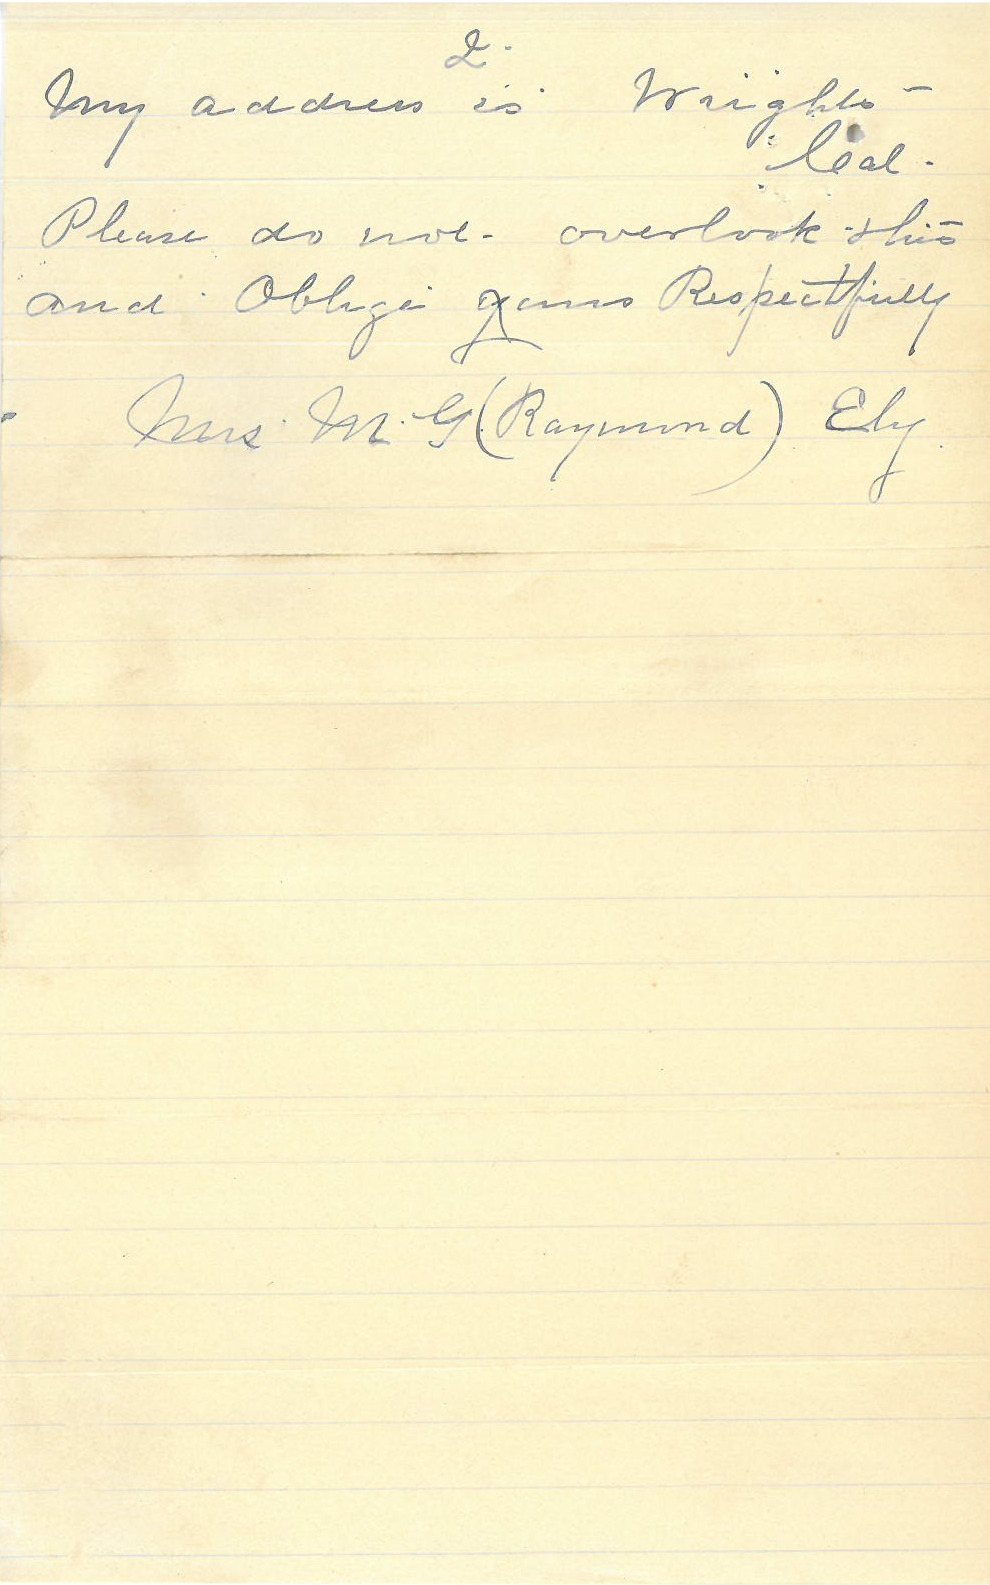 2.
My address is Wrights -
Cal.
Please do not overlook this
and Oblige yours Respectfully
Mrs. M. G (Raymond) Ely